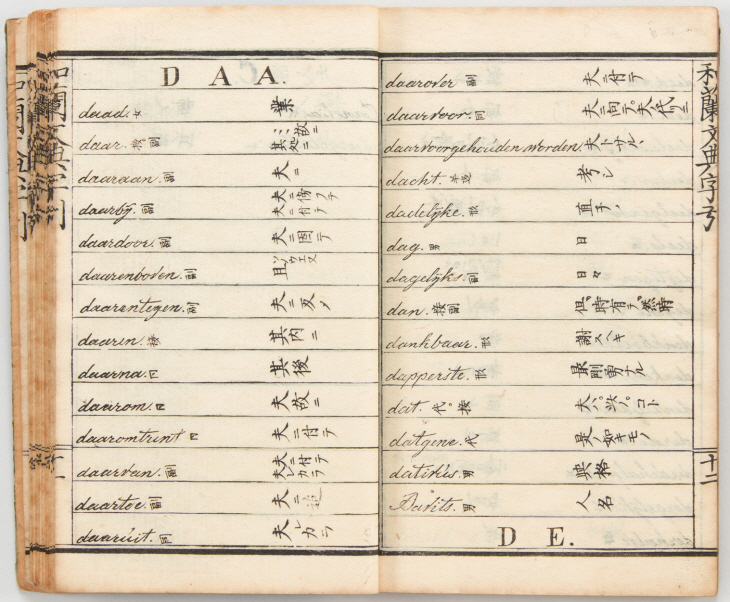 D A A.
daad. 女 業
daar. 接 副 其処ニ 故ニ
daaraan. 副 夫ニ
daarbÿ. 副 夫ニ傍フテ 夫ニ付テ
daardoor. 副 夫ニ因テ
daarenboven. 副 且
daarentegen. 副 夫ニ反ノ
daarin. 接 其内ニ
daarna. 其後
daarom. 夫故ニ
daaromtrent 夫ニ付テ
daarvan. 副 夫ニ付テ 夫レカラ
daartoe. 副 夫ニ
daarüit. 同 夫レカラ
daarover 副 夫ニ付テ
daarvoor. 同 夫ニ向テ 夫ニ代テ
daarvoorgehouden worden 夫ト
dacht. 考シ
dadelÿke. 形 直チノ
dag. 男 日
dagelÿks. 副 日々
dan. 接 副 但 時 有テ 然時
dankbaar. 形 謝スヘキ
dapperste. 形 最剛勇ナル
dat. 代 接 夫 コト
datgene. 代 是ノ如キモノ
dativüs. 男 與格
Davits. 男 人名
D E.
和蘭文典字引
十二